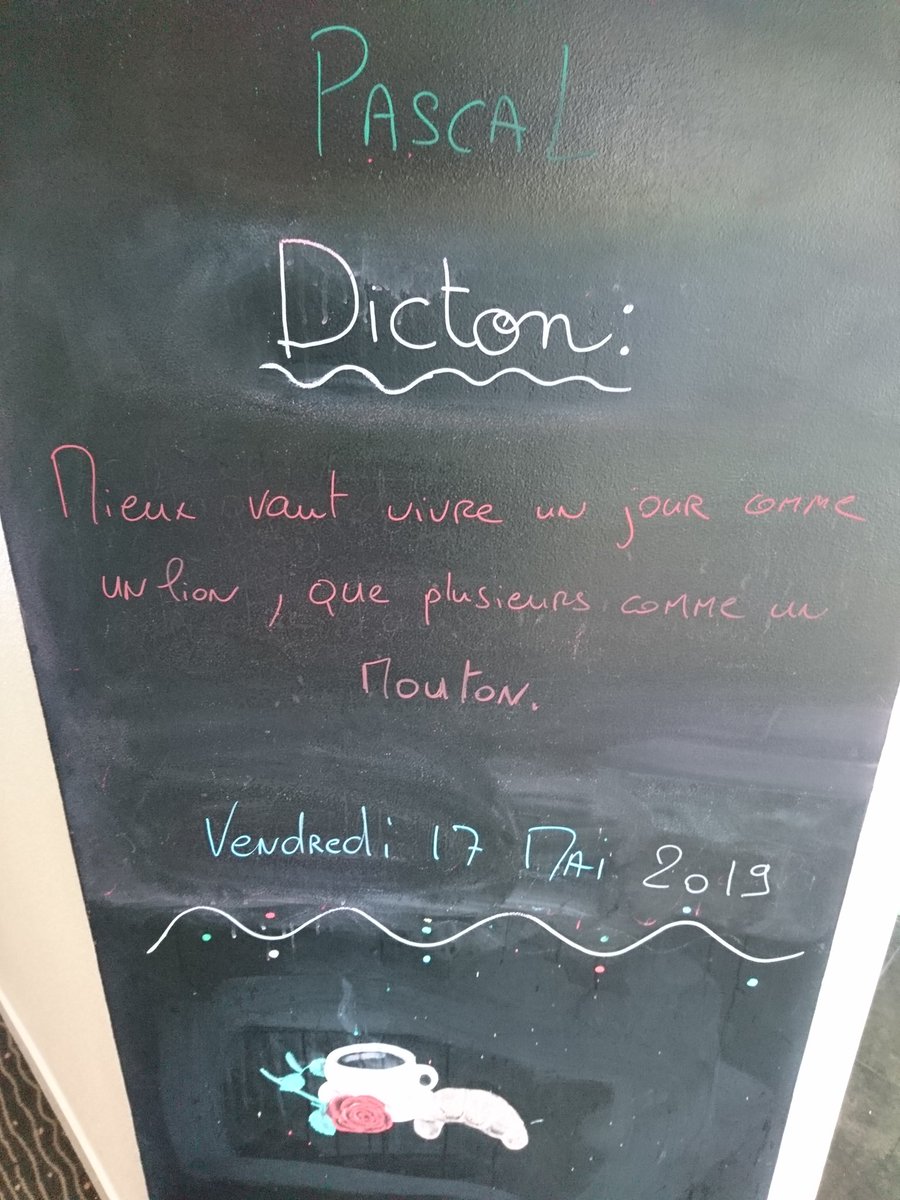 PASCAL
Dicton:
Mieux vaut vivre un jour comme
un lion, que plusieurs comme un
Mouton.
Vendredi 17 Mai 2019